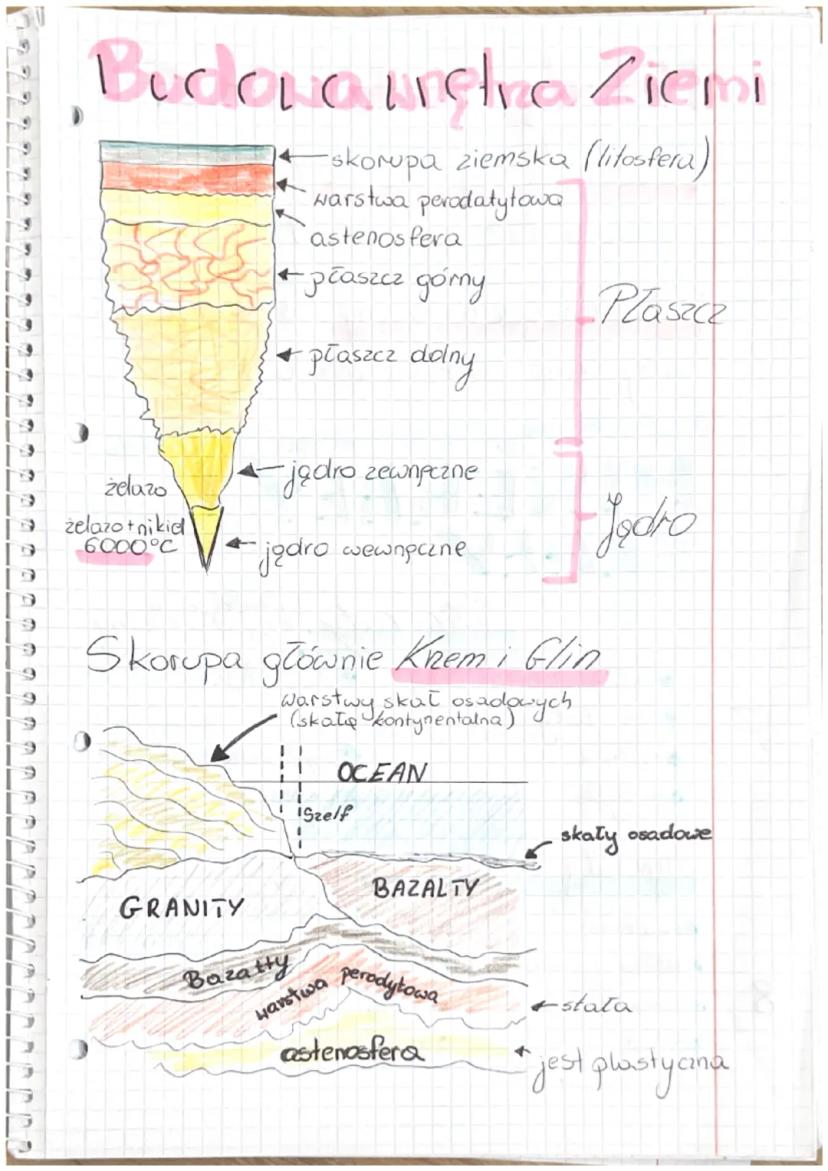 Budowa wnętrza Ziemi
skorupa ziemska (litosfera)
warstwa perodatytowa
astenosfera
płaszcz górny
Płaszcz
płaszcz dolny
jądro zewnęczne
żelazo
żelazo + nikiel
6000°C
jądro wewnęczne
Jądro
Skorupa głównie Krzem i Glin
warstwy skał osadowych
(skałę kontynentalna)
OCEAN
Szelf
skały osadowe
BAZALTY
GRANITY
Bazatty
warstwa perodytowa
stała
astenosfera
jest plastyczna